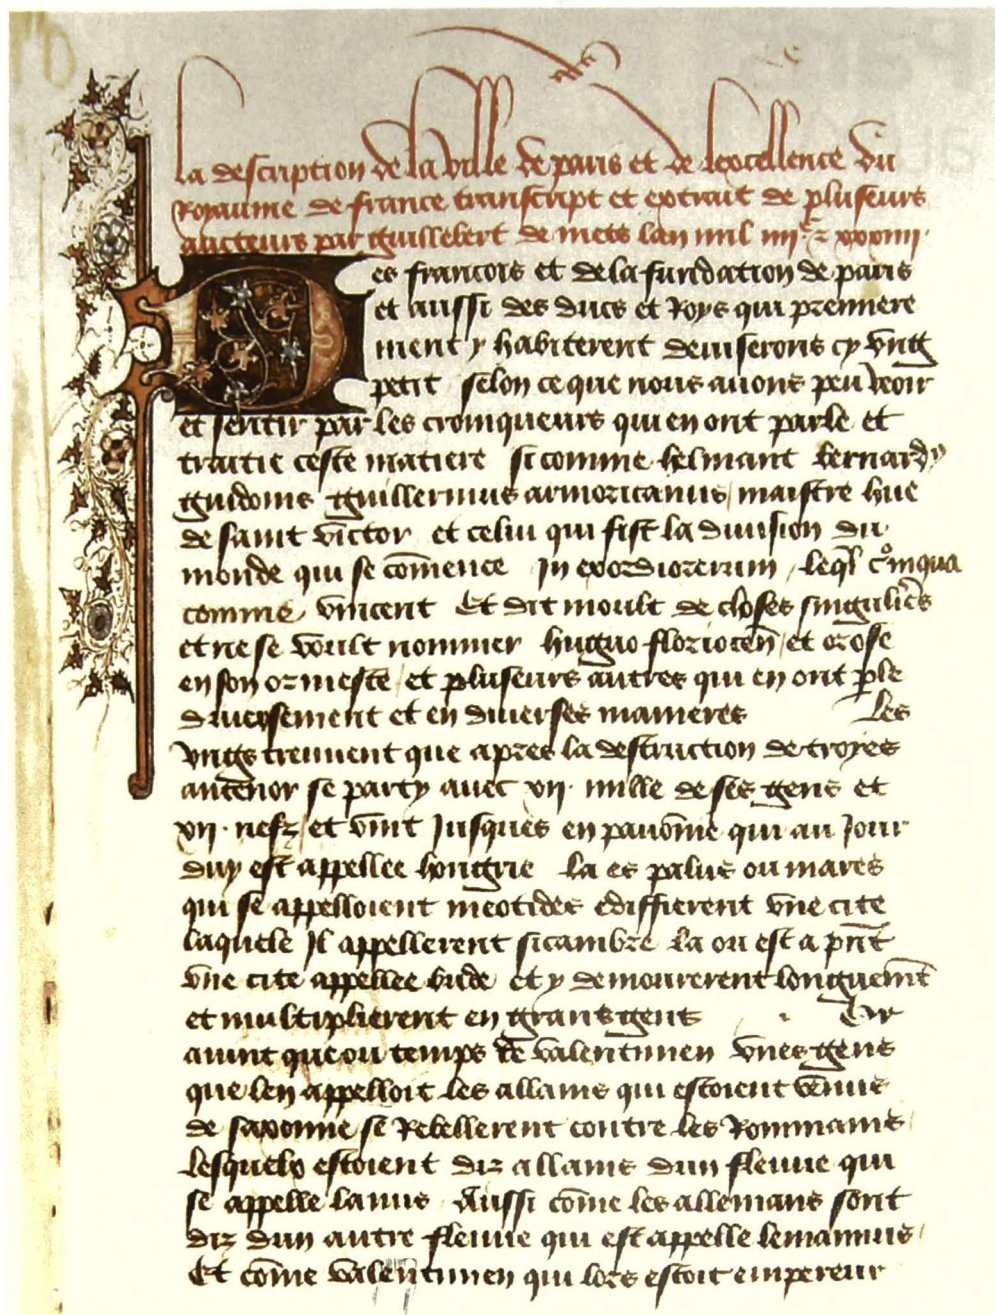 La description de la ville de paris et de lexcellence du
Royaume de france transcript et extrait de pluseurs
aucteurs par Guillebert de mets lan mil iiii.c z xxxiiii.
Des francois et de la fundation de paris
et aussi des ducs et Roys qui premiere
ment y habiterent deviserons cy ung
petit selon ce que nous avons peu veoir
et sentir par les croniqueurs qui en ont parle et
traitie ceste matiere si comme helmant bernard9
guidonis guillermus armoricanus maistre hue
de saint victor et celui qui fist la division du
monde qui se com̄ence In exordio rerum leql̄
comme vincent Et dit moult de choses singulie̓s
et ne se voult nommer huguo floriacen̄ et orose
en son ormeste et pluseurs autres qui en ont ple
diversement et en diverses manieres Les
ungs tiennent que apres la destruction de troyes
antenor se party avec xii. mille de ses gens et
xii. nefz et vint Jusques en panōnie qui au Jour
duy est appellee hongrie la es palus ou mares
qui se appelloient meotides edifficrent vne cite
laquele Jl appellerent sicambre la ou est a pn̄t
vne cite appellee bude et y demourerent longuemēt
et multiplierent en grans gens Or
avint que ou temps de valentinien vnes gens
que len appelloit les allains qui estoient venus
de saxonne se Rebellerent contre les Rommains
lesquelx estoient diz allains dun fleuve qui
se appelle lanus Aussi cōme les allemans sont
diz dun autre fleuve qui est appelle lemannus
Et cōme valentinien qui lors estoit empereur